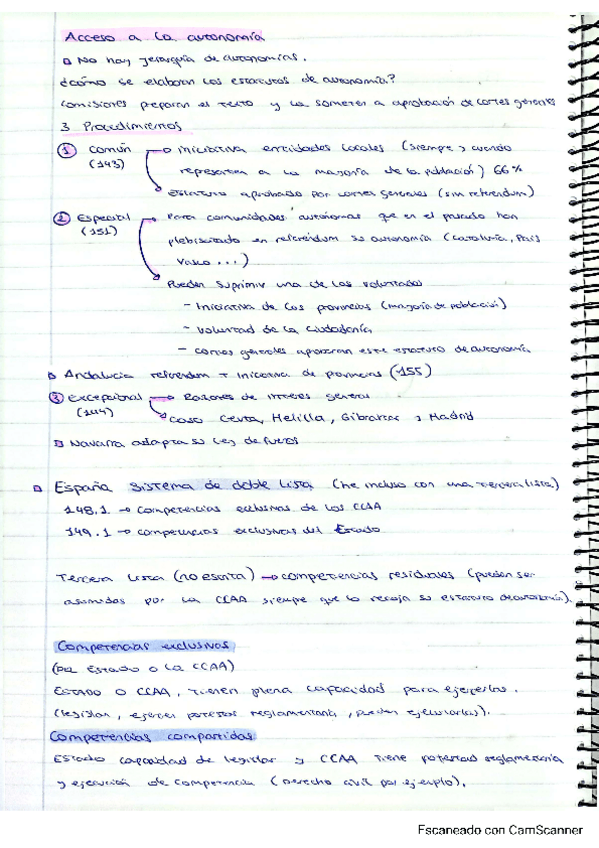 Acceso a la autonomía
No hay jerarquía de autonomías.
¿cómo se elaboran los estatutos de autonomía?
Comisiones preparan el texto y la someten a aprobación de cortes generales
3 Procedimientos
1 Común → iniciativa entidades locales (siempre y cuando
(143) representen a la mayoría de la población) 66%
Estatuto aprobado por cortes generales (sin referendum)
2 Especial → Para comunidades autonomas que en el pasado han
(151) plebiscitado en referéndum su autonomía (Cataluña, País
Vasco ...)
Pueden suprimir una de las voluntades
- Iniciativa de las provincias (mayoría de población)
- voluntad de la ciudadanía
- cortes generales aprueban este estatuto de autonomía
Andalucía referendum + iniciativa de provincias (155)
3 Excepcional → Razones de interes general
(144) Caso Ceuta, Melilla, Gibraltar y Madrid
Navarra adapta su ley de fueros
España sistema de doble lista (he incluso con una tercera lista)
148.1 → competencias exclusivas de las CCAA
149.1 → competencias exclusivas del Estado
Tercera lista (no escrita) → competencias residuales (pueden ser
asumidas por la CCAA siempre que lo recoja su estatuto de autonomía).
Competencias exclusivas
(Del Estado o la CCAA)
Estado o CCAA, tienen plena capacidad para ejercerlas.
(legislan, ejercer potestad reglamentaria, pueden ejecutarlas).
Competencias compartidas
Estado capacidad de legislar y CCAA tiene potestad reglamentaria
y ejecución de competencia (derecho civil por ejemplo).
Escaneado con CamScanner